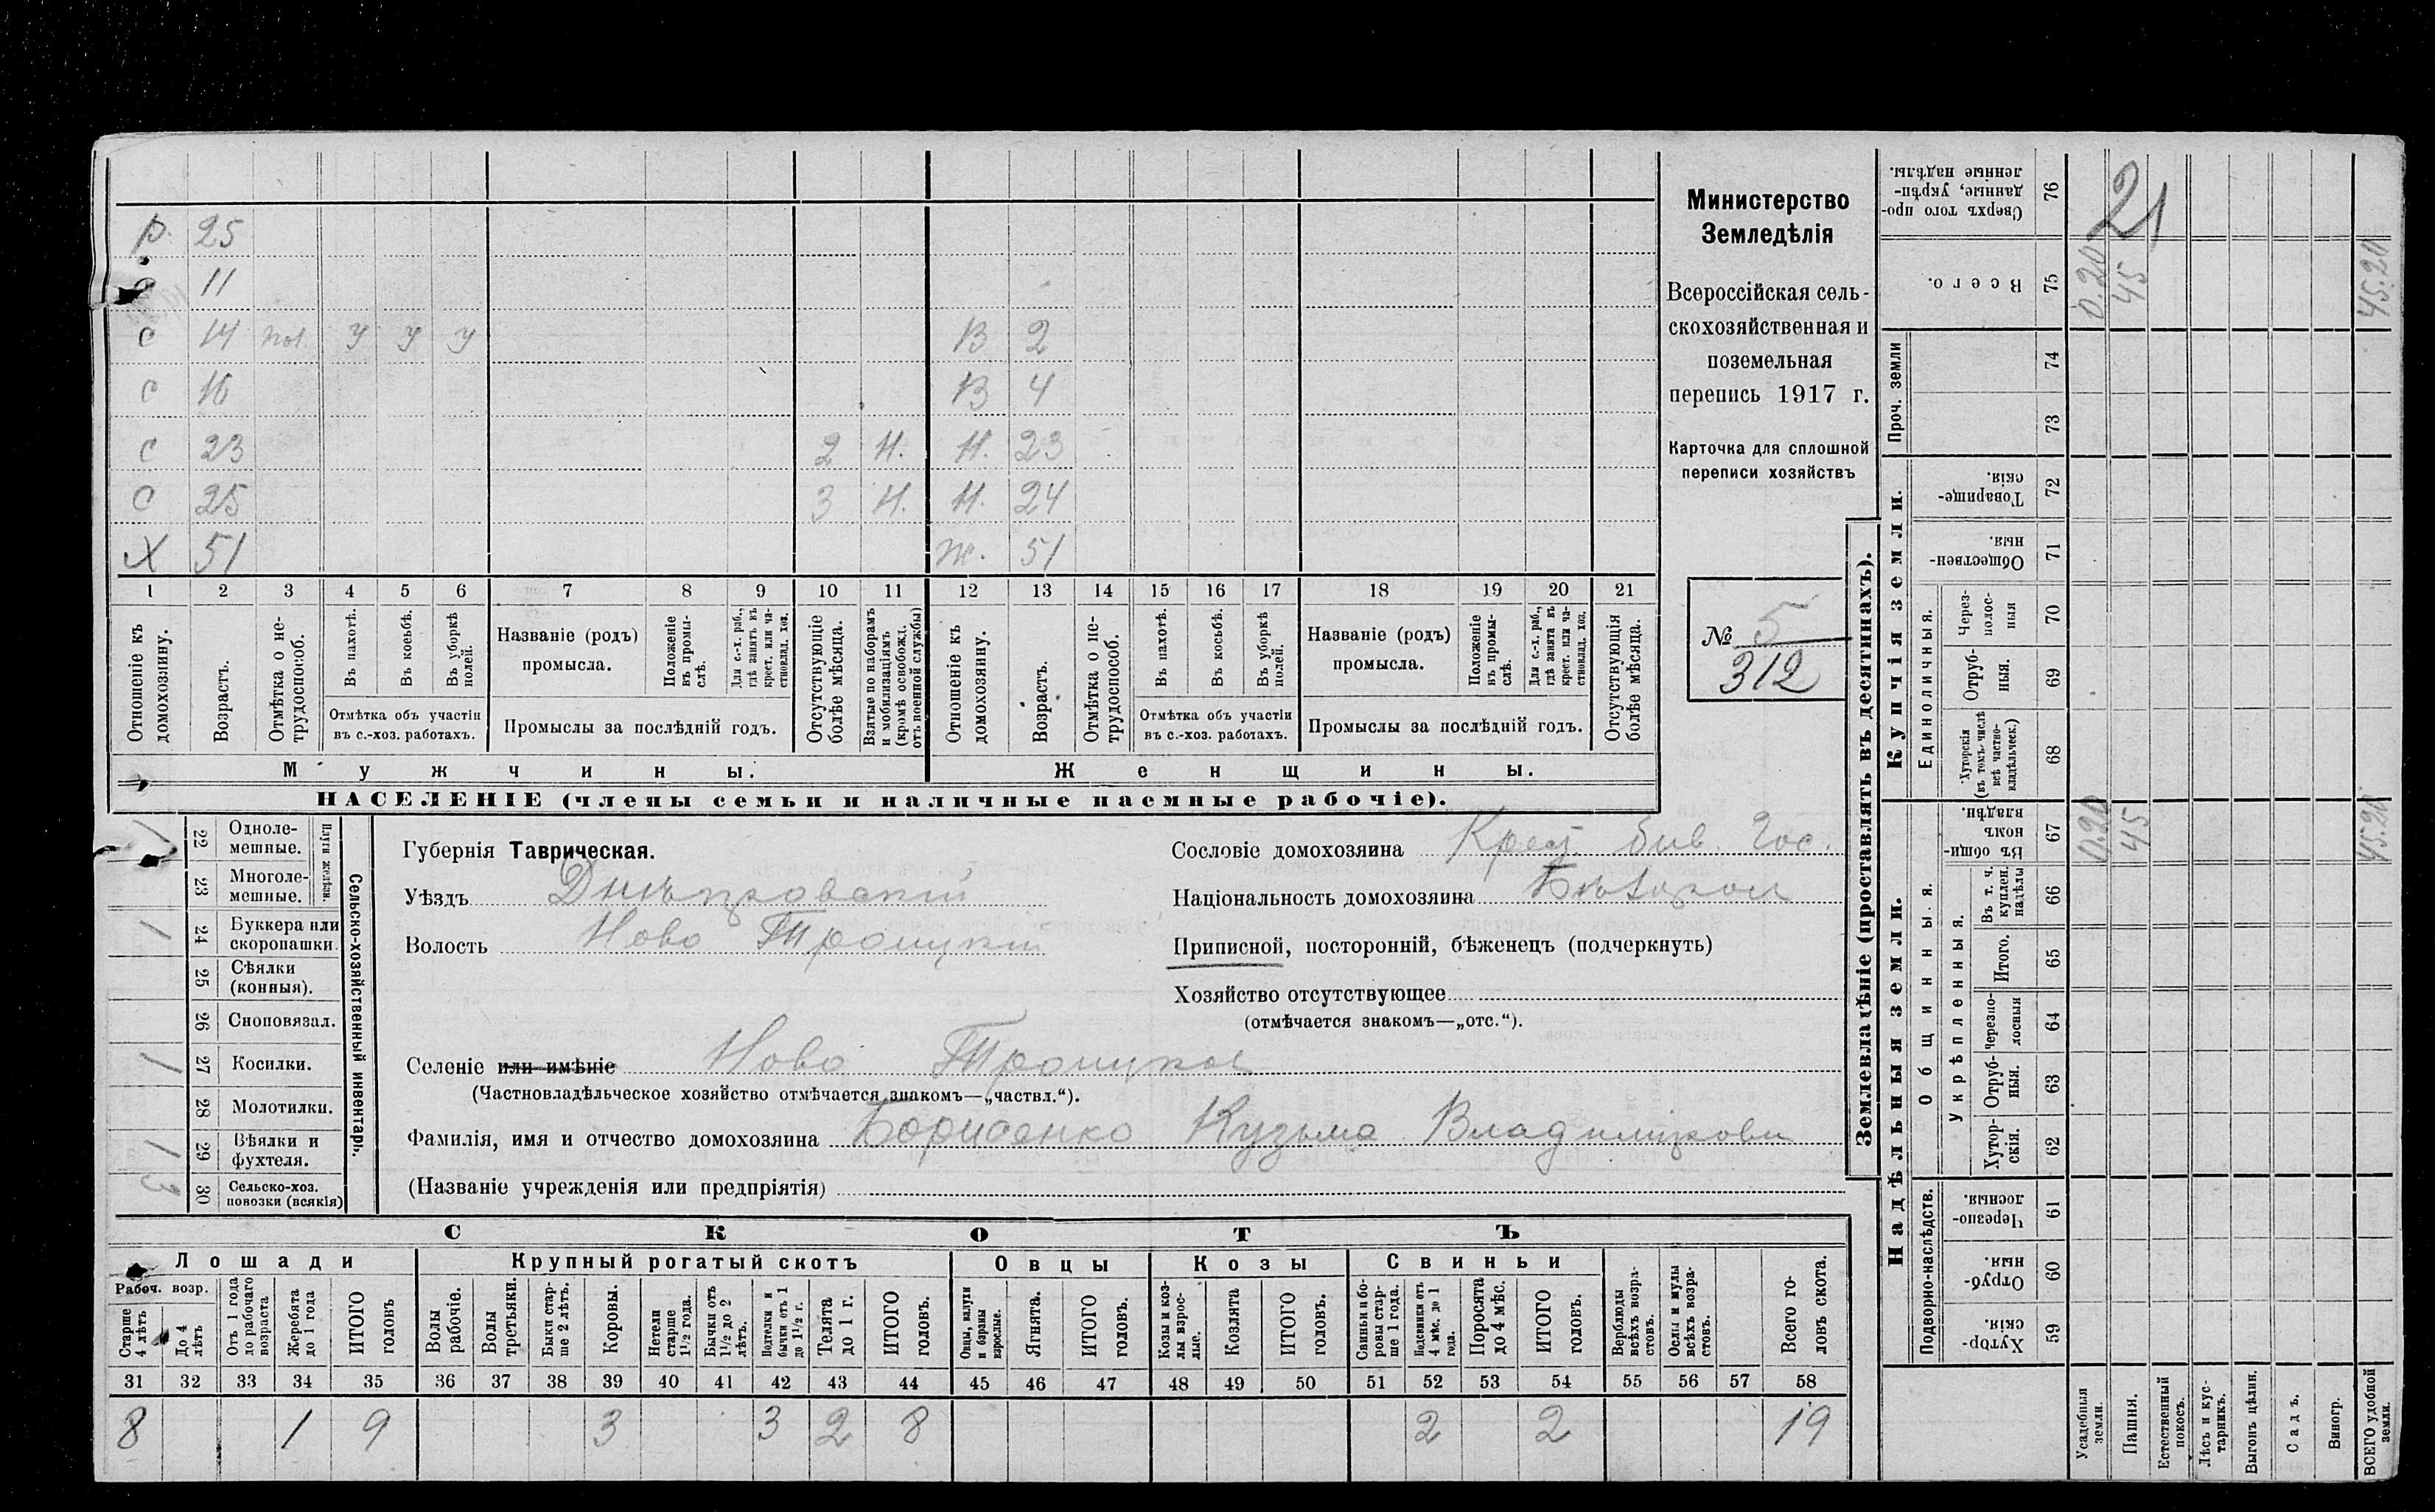 р. 25
11
с 14 пол. У У У В 2
с 16 В 4
с 23 2 Н. Н. 23
с 25 3 Н. Н. 24
Х 51 Ж. 51
1 2 3 4 5 6 7 8 9 10 11 12 13 14 15 16 17 18 19 20 21
Отношеніе къ домохозяину.
Возрастъ.
Отмѣтка о не-трудоспособ.
Въ пахотѣ.
Въ косьбѣ.
Въ уборкѣ полей.
Отмѣтка объ участіи
въ с.-хоз. работахъ.
Названіе (родъ)
промысла.
Положеніе въ промы-слѣ.
Для с.-х. раб., гдѣ занятъ въ крест. или ча-стновлад. хоз.
Промыслы за послѣдній годъ.
Отсутствующіе болѣе мѣсяца.
Взятые по наборамъ и мобилизаціямъ (кромѣ освобожд. отъ военной службы)
Отношеніе къ домохозяину.
Возрастъ.
Отмѣтка о не-трудоспособ.
Въ пахотѣ.
Въ косьбѣ.
Въ уборкѣ полей.
Отмѣтка объ участіи
въ с.-хоз. работахъ.
Названіе (родъ)
промысла.
Положеніе въ промы-слѣ.
Для с.-х. раб., гдѣ занята въ крест. или ча-стновлад. хоз.
Промыслы за послѣдній годъ.
Отсутствующія болѣе мѣсяца.
Мужчины.
Женщины.
НАСЕЛЕНІЕ (члены семьи и наличные наемные рабочіе).
Министерство
Земледѣлія
Всероссійская сель-
скохозяйственная и
поземельная
перепись 1917 г.
Карточка для сплошной
переписи хозяйствъ
№ 5
312
Сельско-хозяйственный инвентарь.
Плуги желѣзн.
1 22 Одноле-мешные.
23 Многоле-мешные.
1 24 Буккера или скоропашки.
25 Сѣялки (конныя).
26 Сноповязал.
1 27 Косилки.
28 Молотилки.
1 29 Вѣялки и фухтеля.
3 30 Сельско-хоз. повозки (всякія)
Губернія Таврическая.
Уѣздъ Днѣпровскій
Волость Ново Троицкій
Сословіе домохозяина Крест. быв. Гос.
Національность домохозяина
Приписной, посторонній, бѣженецъ (подчеркнуть)
Хозяйство отсутствующее
(отмѣчается знакомъ—„отс.“).
Селеніе или имѣніе Ново Троицкое
(Частновладѣльческое хозяйство отмѣчается знакомъ—„частвл.“).
Фамилія, имя и отчество домохозяина Борисенко Кузьма Владимірови
(Названіе учрежденія или предпріятія)
СКОТЪ
Лошади Крупный рогатый скотъ Овцы Козы Свиньи
Рабоч. возр.
Старше 4 лѣтъ
До 4 лѣтъ
Отъ 1 года до рабочаго возраста
Жеребята до 1 года
ИТОГО головъ
Волы рабочіе.
Волы третьяки.
Быки стар-ше 2 лѣтъ.
Коровы.
Нетели старше 1½ года.
Бычки отъ 1½ до 2 лѣтъ.
Подтелки и бычки отъ 1 до 1½ г.
Телята до 1 г.
ИТОГО головъ.
Овцы, валухи и бараны взрослые.
Ягнята.
ИТОГО головъ.
Козы и коз-лы взрос-лые.
Козлята
ИТОГО головъ.
Свиньи и бо-ровы стар-ше 1 года.
Подсвинки отъ 4 мѣс. до 1 года.
Поросята до 4 мѣс.
ИТОГО головъ.
Верблюды всѣхъ возра-стовъ.
Ослы и мулы всѣхъ возра-стовъ.
Всего го-ловъ скота.
31 32 33 34 35 36 37 38 39 40 41 42 43 44 45 46 47 48 49 50 51 52 53 54 55 56 57 58
8 1 9 3 3 2 8 2 2 19
Землевладѣніе (проставлять въ десятинахъ).
Купчія земли.
Надѣльныя земли.
76 Сверхъ того про-данные, укрѣп-ленные надѣлы. 21
75 Всего. 0.20 45 45.20
Проч. земли
74
73
72 Товарище-скія.
71 Обществен-ныя.
Единоличныя.
70 Через-полос-ныя
69 Отруб-ныя.
68 Хуторскія (въ томъ числѣ всѣ частно-владѣльческ.)
Общинныя.
67 Въ общин-номъ владѣн. 0.20 45 45.20
Укрѣпленныя.
66 Въ т. ч. куплен. надѣлы
65 Итого.
64 Черезпо-лосныя
63 Отруб-ныя.
62 Хутор-скія.
Подворно-наслѣдств.
61 Черезпо-лосныя.
60 Отруб-ныя
59 Хутор-скія.
Усадебныя земли.
Пашня.
Естественный покосъ.
Лѣсъ и кус-тарникъ.
Выгонъ цѣлин.
Садъ.
Виногр.
ВСЕГО удобной земли.